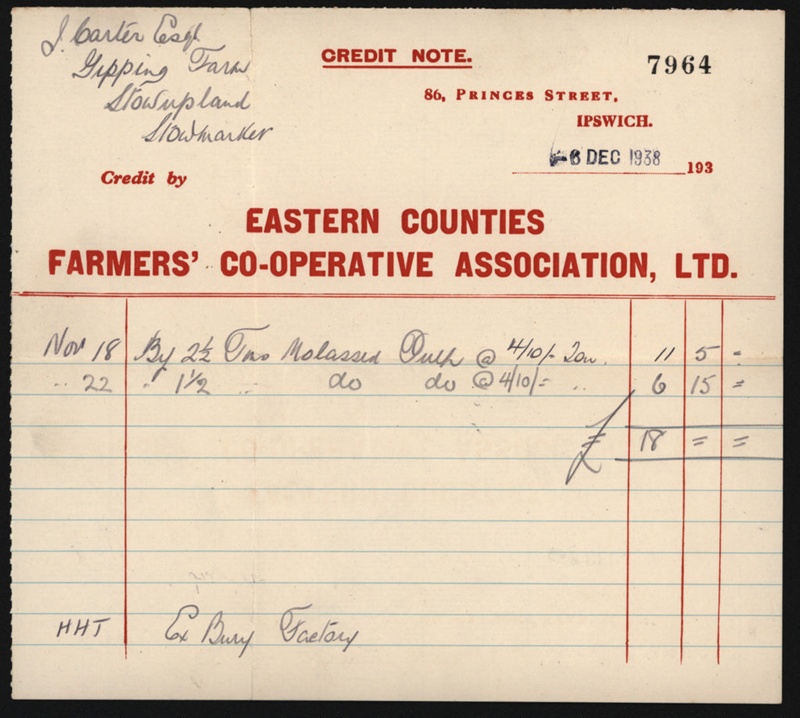 J. Carter Esq
Gipping Farm
Stowupland
Stowmarket
CREDIT NOTE.
7964
86, PRINCES STREET,
IPSWICH.
-6 DEC 1938 193
Credit by
EASTERN COUNTIES
FARMERS' CO-OPERATIVE ASSOCIATION, LTD.
Nov 18 By 2½ Tons Molassed Pulp @ 4/10/- Ton. 11 5 =
" 22 " 1½ " do do @ 4/10/= " 6 15 =
£ 18 = =
HHJ Ex Bury Factory